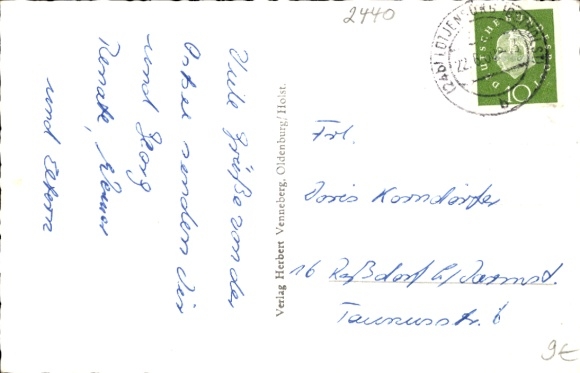 2440
Viele Grüße von der
Ostsee senden Dir
und Georg
Renate, Werner
und Eltern
Verlag Herbert Venneberg, Oldenburg/Holst.
(24b) LÜTJENBURG
22.
a
DEUTSCHE BUNDESPOST
10
Frl.
Doris Korndörfer
16 Roßdorf b/Darmst.
Taunusstr. 6
9€